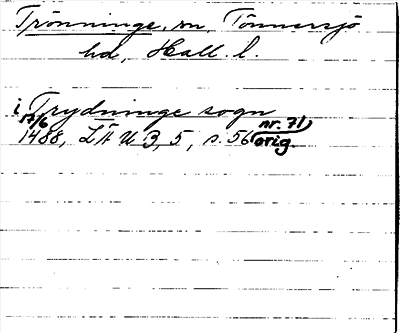 Trönninge, sn, Tönnersjö
hd, Hall. l.
i Trydninge sogn
17/6 1488, LÄU 3, 5, s. 56 nr. 71, orig.